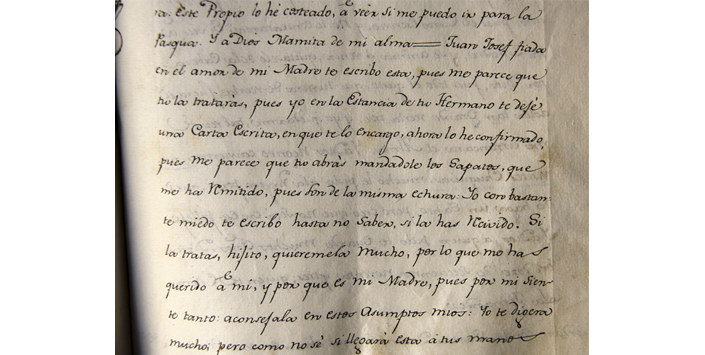 ra. Este Propio lo he costeado, â veer si me puedo ir para la
Pasqua. Y a Dios Mamita de mi alma= Juan Josef fiada
en el amor de mi Madre te escribo esta, pues me parece que
tu la tratarâs, pues yo en la Estancia de tu Hermano te dejê
una Carta Escrita, en que te lo encargo, ahora lo he confirmado,
pues me parece que tu abrâs mandadole los Sapatos, que
me ha Remitido, pues son de la misma echura: Yo con bastan
te miedo te escribo hasta no Saber, si la has Recivido. Si
la tratas, hijito, quieremela mucho, por lo que me ha
querido â mi, y por que es mi Madre, pues por mi Sien-
te tanto: aconsejala en estos Asumptos mios: Yo te digera
mucho, pero como no sê si llegarâ esta â tus manos